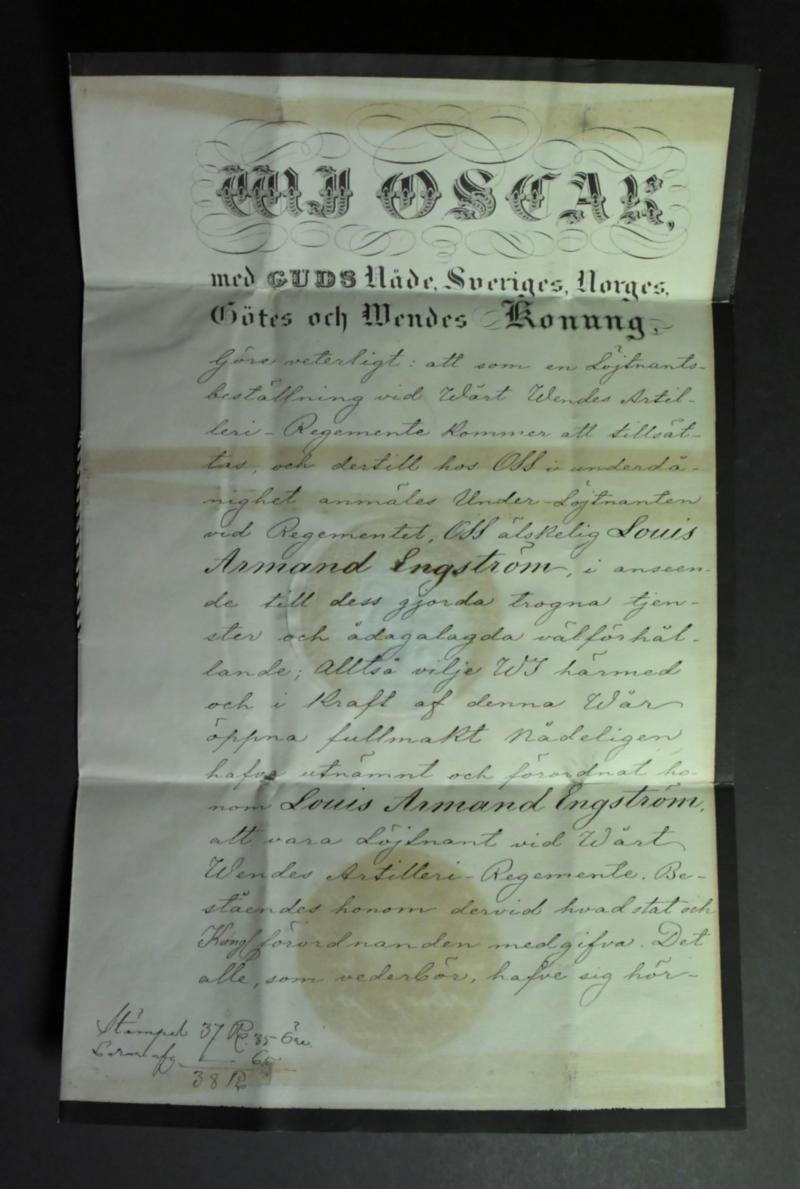 WI OSCAR,
med GUDS Nåde, Sveriges, Norges,
Götes och Wendes Konung,
Göre veterligt: att som en Löjtnants-
beställning vid Wårt Wendes Artil-
leri-Regemente kommer att tillsät-
tas, och dertill hos OSS i underdå-
nighet anmäles Under-Löjtnanten
vid Regementet, OSS älskelig Louis
Armand Engström, i anseen-
de till dess gjorda trogna tjen-
ster och ådagalagda välförhål-
lande; Alltså vilje WI härmed
och i kraft af denna Wår
öppna fullmakt Nådeligen
hafva utnämnt och förordnat ho-
nom Louis Armand Engström,
att vara Löjtnant vid Wårt
Wendes Artilleri-Regemente. Be-
ståendes honom dervid hvad stat och
förordnanden medgifva. Det
alle, som vederbör, hafve sig hör-
Stämpel 37 R. 35 Öre.
65
38 R